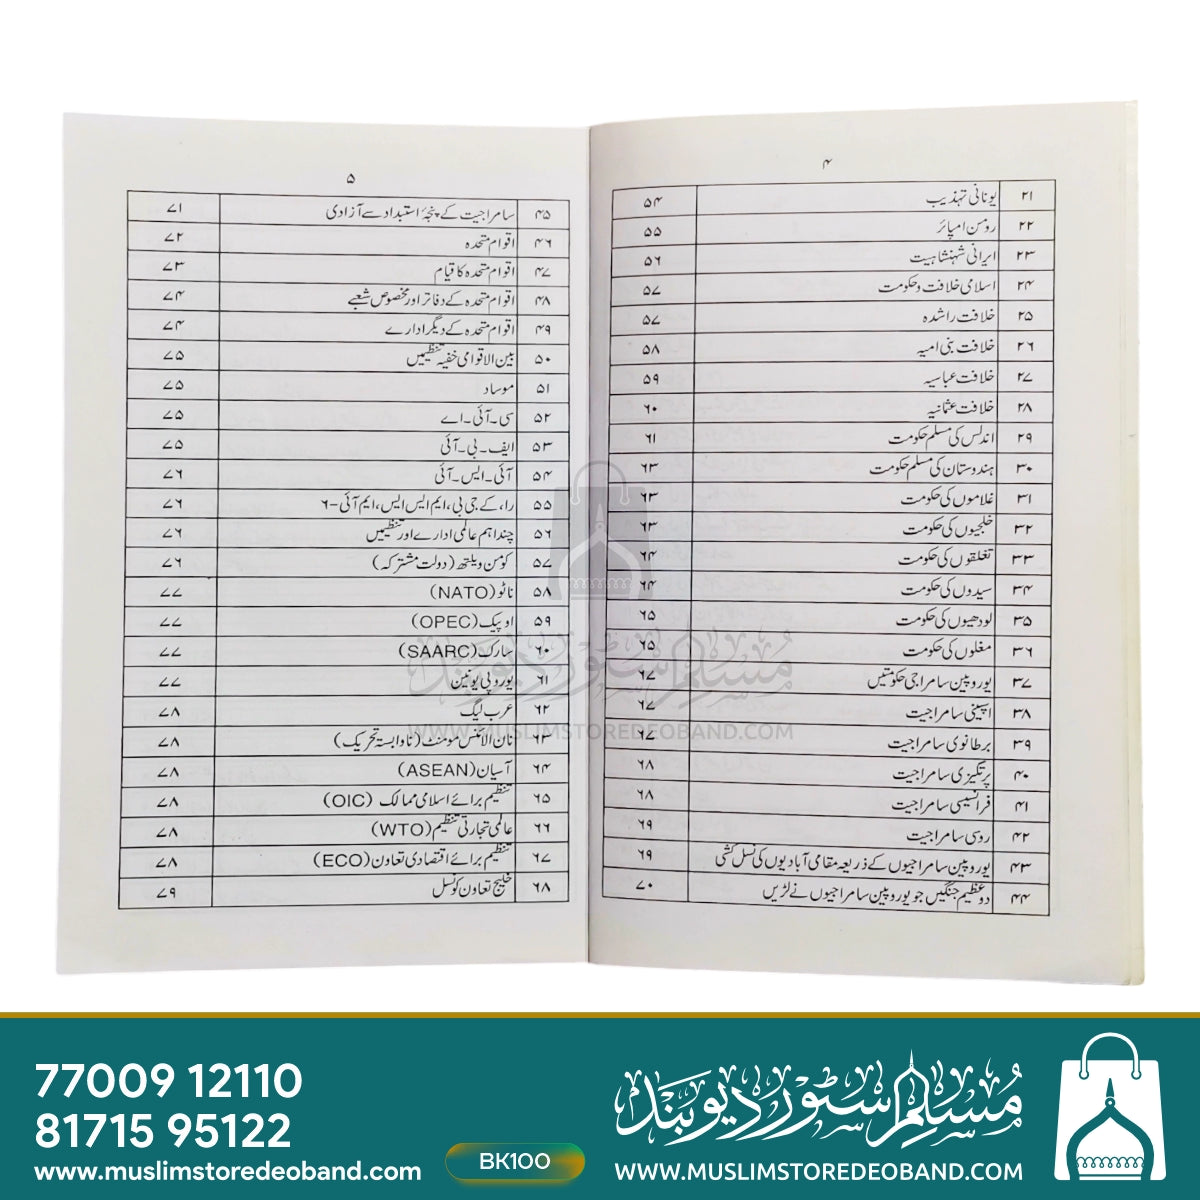 ۴
۲۱ یونانی تہذیب ۵۴
۲۲ رومن امپائر ۵۵
۲۳ ایرانی شہنشاہیت ۵۶
۲۴ اسلامی خلافت وحکومت ۵۷
۲۵ خلافت راشدہ ۵۷
۲۶ خلافت بنی امیہ ۵۸
۲۷ خلافت عباسیہ ۵۹
۲۸ خلافت عثمانیہ ۶۰
۲۹ اندلس کی مسلم حکومت ۶۱
۳۰ ہندوستان کی مسلم حکومت ۶۳
۳۱ غلاموں کی حکومت ۶۳
۳۲ خلجیوں کی حکومت ۶۳
۳۳ تغلقوں کی حکومت ۶۴
۳۴ سیدوں کی حکومت ۶۴
۳۵ لودھیوں کی حکومت ۶۵
۳۶ مغلوں کی حکومت ۶۵
۳۷ یوروپین سامراجی حکومتیں ۶۷
۳۸ اسپینی سامراجیت ۶۷
۳۹ برطانوی سامراجیت ۶۷
۴۰ پرتگیزی سامراجیت ۶۸
۴۱ فرانسیسی سامراجیت ۶۸
۴۲ روسی سامراجیت ۶۹
۴۳ یوروپین سامراجیوں کے ذریعہ مقامی آبادیوں کی نسل کشی ۶۹
۴۴ دو عظیم جنگیں جو یوروپین سامراجیوں نے لڑیں ۷۰
۵
۴۵ سامراجیت کے پنجۂ استبداد سے آزادی ۷۱
۴۶ اقوام متحدہ ۷۲
۴۷ اقوام متحدہ کا قیام ۷۳
۴۸ اقوام متحدہ کے دفاتر اور مخصوص شعبے ۷۴
۴۹ اقوام متحدہ کے دیگر ادارے ۷۴
۵۰ بین الاقوامی خفیہ تنظیمیں ۷۵
۵۱ موساد ۷۵
۵۲ سی۔آئی۔اے ۷۵
۵۳ ایف۔بی۔آئی ۷۵
۵۴ آئی۔ایس۔آئی ۷۶
۵۵ را، کے جی بی، ایم ایس ایس، ایم آئی-۶ ۷۶
۵۶ چند اہم عالمی ادارے اور تنظیمیں ۷۶
۵۷ کومن ویلتھ (دولت مشترکہ) ۷۶
۵۸ ناٹو (NATO) ۷۷
۵۹ اوپیک (OPEC) ۷۷
۶۰ سارک (SAARC) ۷۷
۶۱ یوروپی یونین ۷۷
۶۲ عرب لیگ ۷۸
۶۳ نان الائنس مومنٹ (ناوابستہ تحریک) ۷۸
۶۴ آسیان (ASEAN) ۷۸
۶۵ تنظیم برائے اسلامی ممالک (OIC) ۷۸
۶۶ عالمی تجارتی تنظیم (WTO) ۷۸
۶۷ تنظیم برائے اقتصادی تعاون (ECO) ۷۸
۶۸ خلیج تعاون کونسل ۷۹
مسلم سٹور دیوبند
WWW.MUSLIMSTOREDEOBAND.COM
77009 12110
81715 95122
www.muslimstoredeoband.com
BK100
مسلم سٹور دیوبند
WWW.MUSLIMSTOREDEOBAND.COM